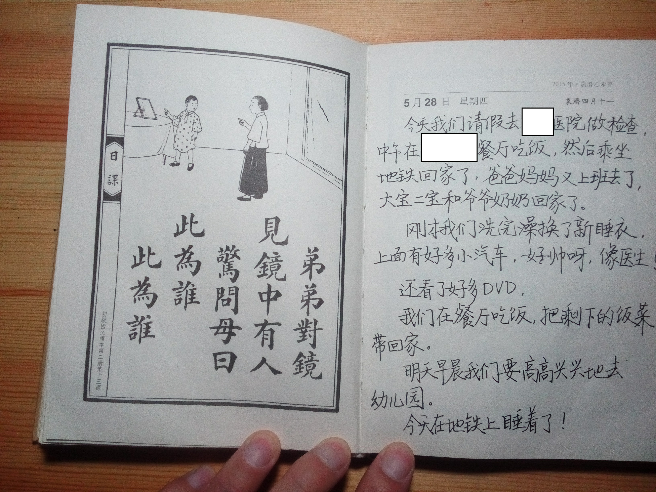 日課
弟弟對鏡
見鏡中有人
驚問母曰
此為誰
此為誰
5月28日 星期四
農曆四月十一
今天我们请假去 医院做检查,
中午在 餐厅吃饭,然后乘坐
地铁回家了,爸爸妈妈又上班去了,
大宝二宝和爷爷奶奶回家了。
刚才我们洗完澡换了新睡衣,
上面有好多小汽车,好帅呀,像医生!
还看了好多DVD,
我们在餐厅吃饭,把剩下的饭菜
带回家。
明天早晨我们要高高兴兴地去
幼儿园。
今天在地铁上睡着了!